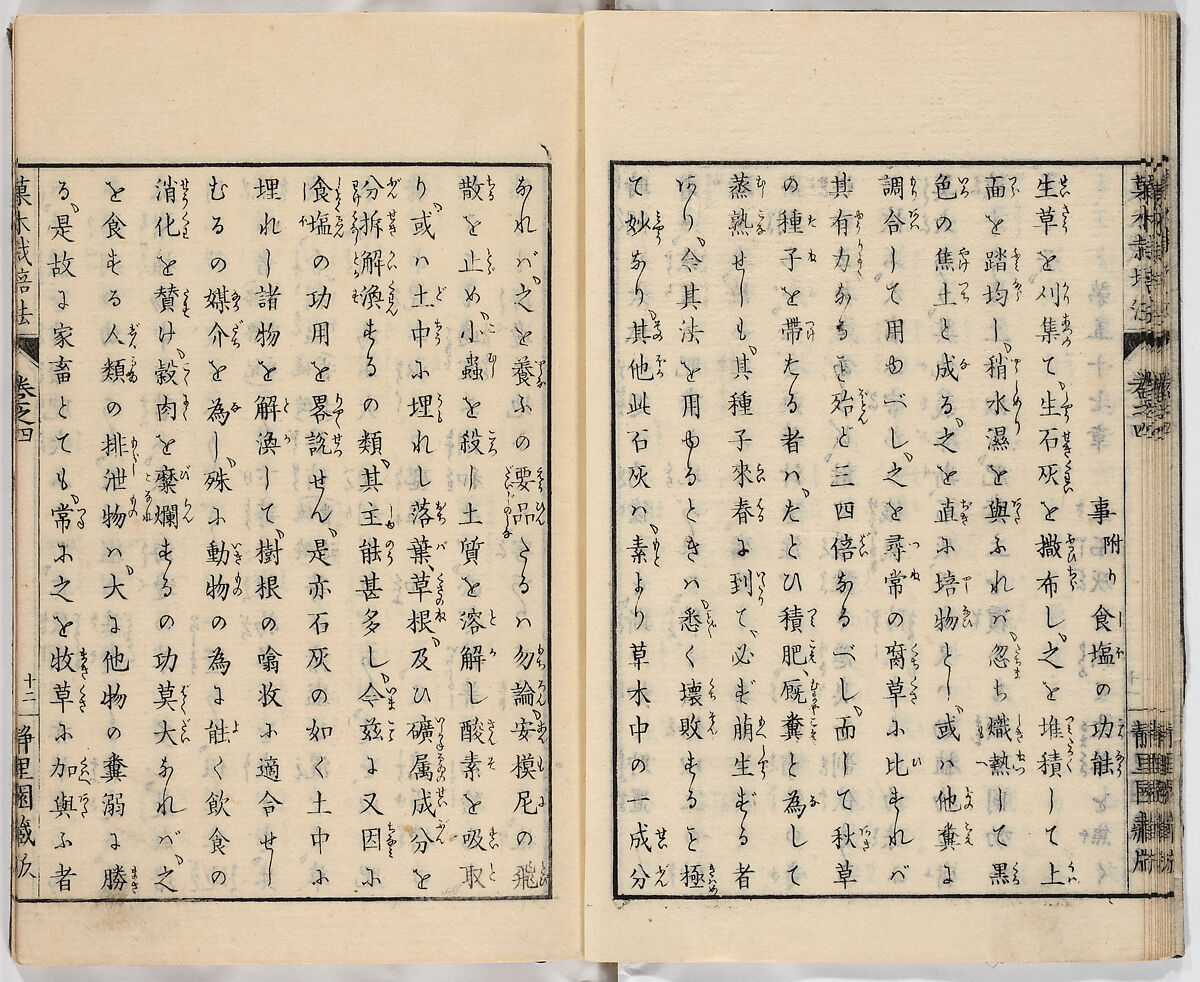 菓木栽培法
巻之四
事附り食塩の功能
生草を刈集て生石灰を撒布し、之を堆積して上
面を踏均し、稍水濕を與ふれバ、忽ち熾熱して黒
色の焦土と成る、之を直ふ培物とし、或ハ他糞と
調合して用ゆべし、之を尋常の腐草ふ比すれバ
其有力なると殆ど三四倍なるべし、而して秋草
の種子を帶たる者ハ、たとひ積肥、厩糞と為して
蒸熟せしも、其種子來春に到て、必ず萠生ずる者
なり、今其法を用ゆるときハ、悉く壊敗すると極
て妙なり、其他此石灰ハ、素より草木中の一成分
なれバ、之を養ふの要品たるハ勿論、安模尼の飛
散を止め、小蟲を殺し土質を溶解し酸素を吸取
り、或ハ土中ふ埋れし落葉、草根、及ひ礦属成分を
分拆解渙するの類、其主能甚多し、今茲に又因ふ
食塩の功用を畧説せん、是亦石灰の如く土中ふ
埋れし諸物を解渙して、樹根の噏收ふ適合せし
むるの媒介を為し、殊ふ動物の為に能く飲食の
消化を賛け、穀肉を糜爛するの功莫大なれバ、之
を食する人類の排泄物ハ、大に他物の糞溺に勝
る、是故に家畜とても、常ふ之を牧草ふ加與ふ者
菓木栽培法
巻之四
十二
静里園蔵版